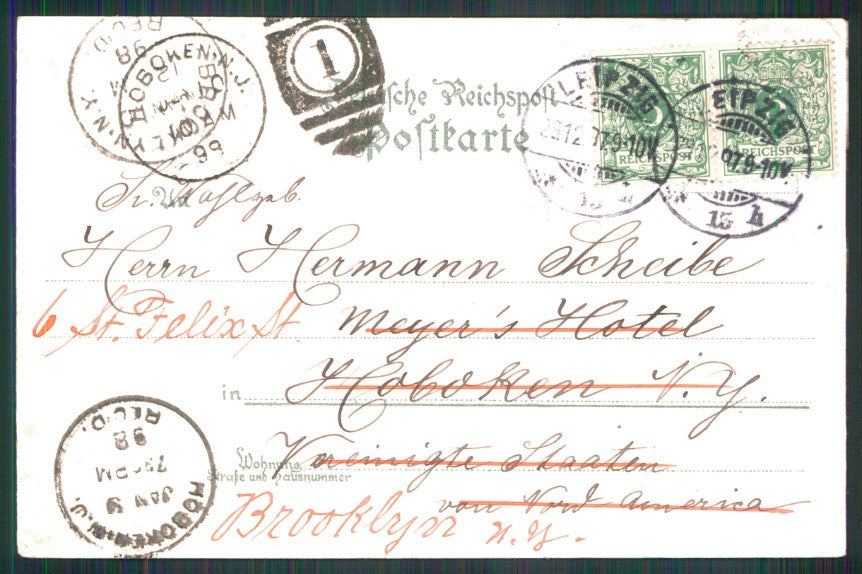 HOBOKEN. N.J.
98
REC'D.
98
1
Deutsche Reichspost
Postkarte
LEIPZIG
9-10V
13 h
REICHSPOST
LEIPZIG
97.9-10V
15 h
REICHSPOST
Sr. Wohlgeb.
Herrn Hermann Scheibe
6 St. Felix St. Meyer's Hotel
in Hoboken N.Y.
Wohnung
Straße und Hausnummer
Vereinigte Staaten
von Nord America
Brooklyn N.Y.
HOBOKEN. N.J.
JAN 9
730PM
98
REC'D.